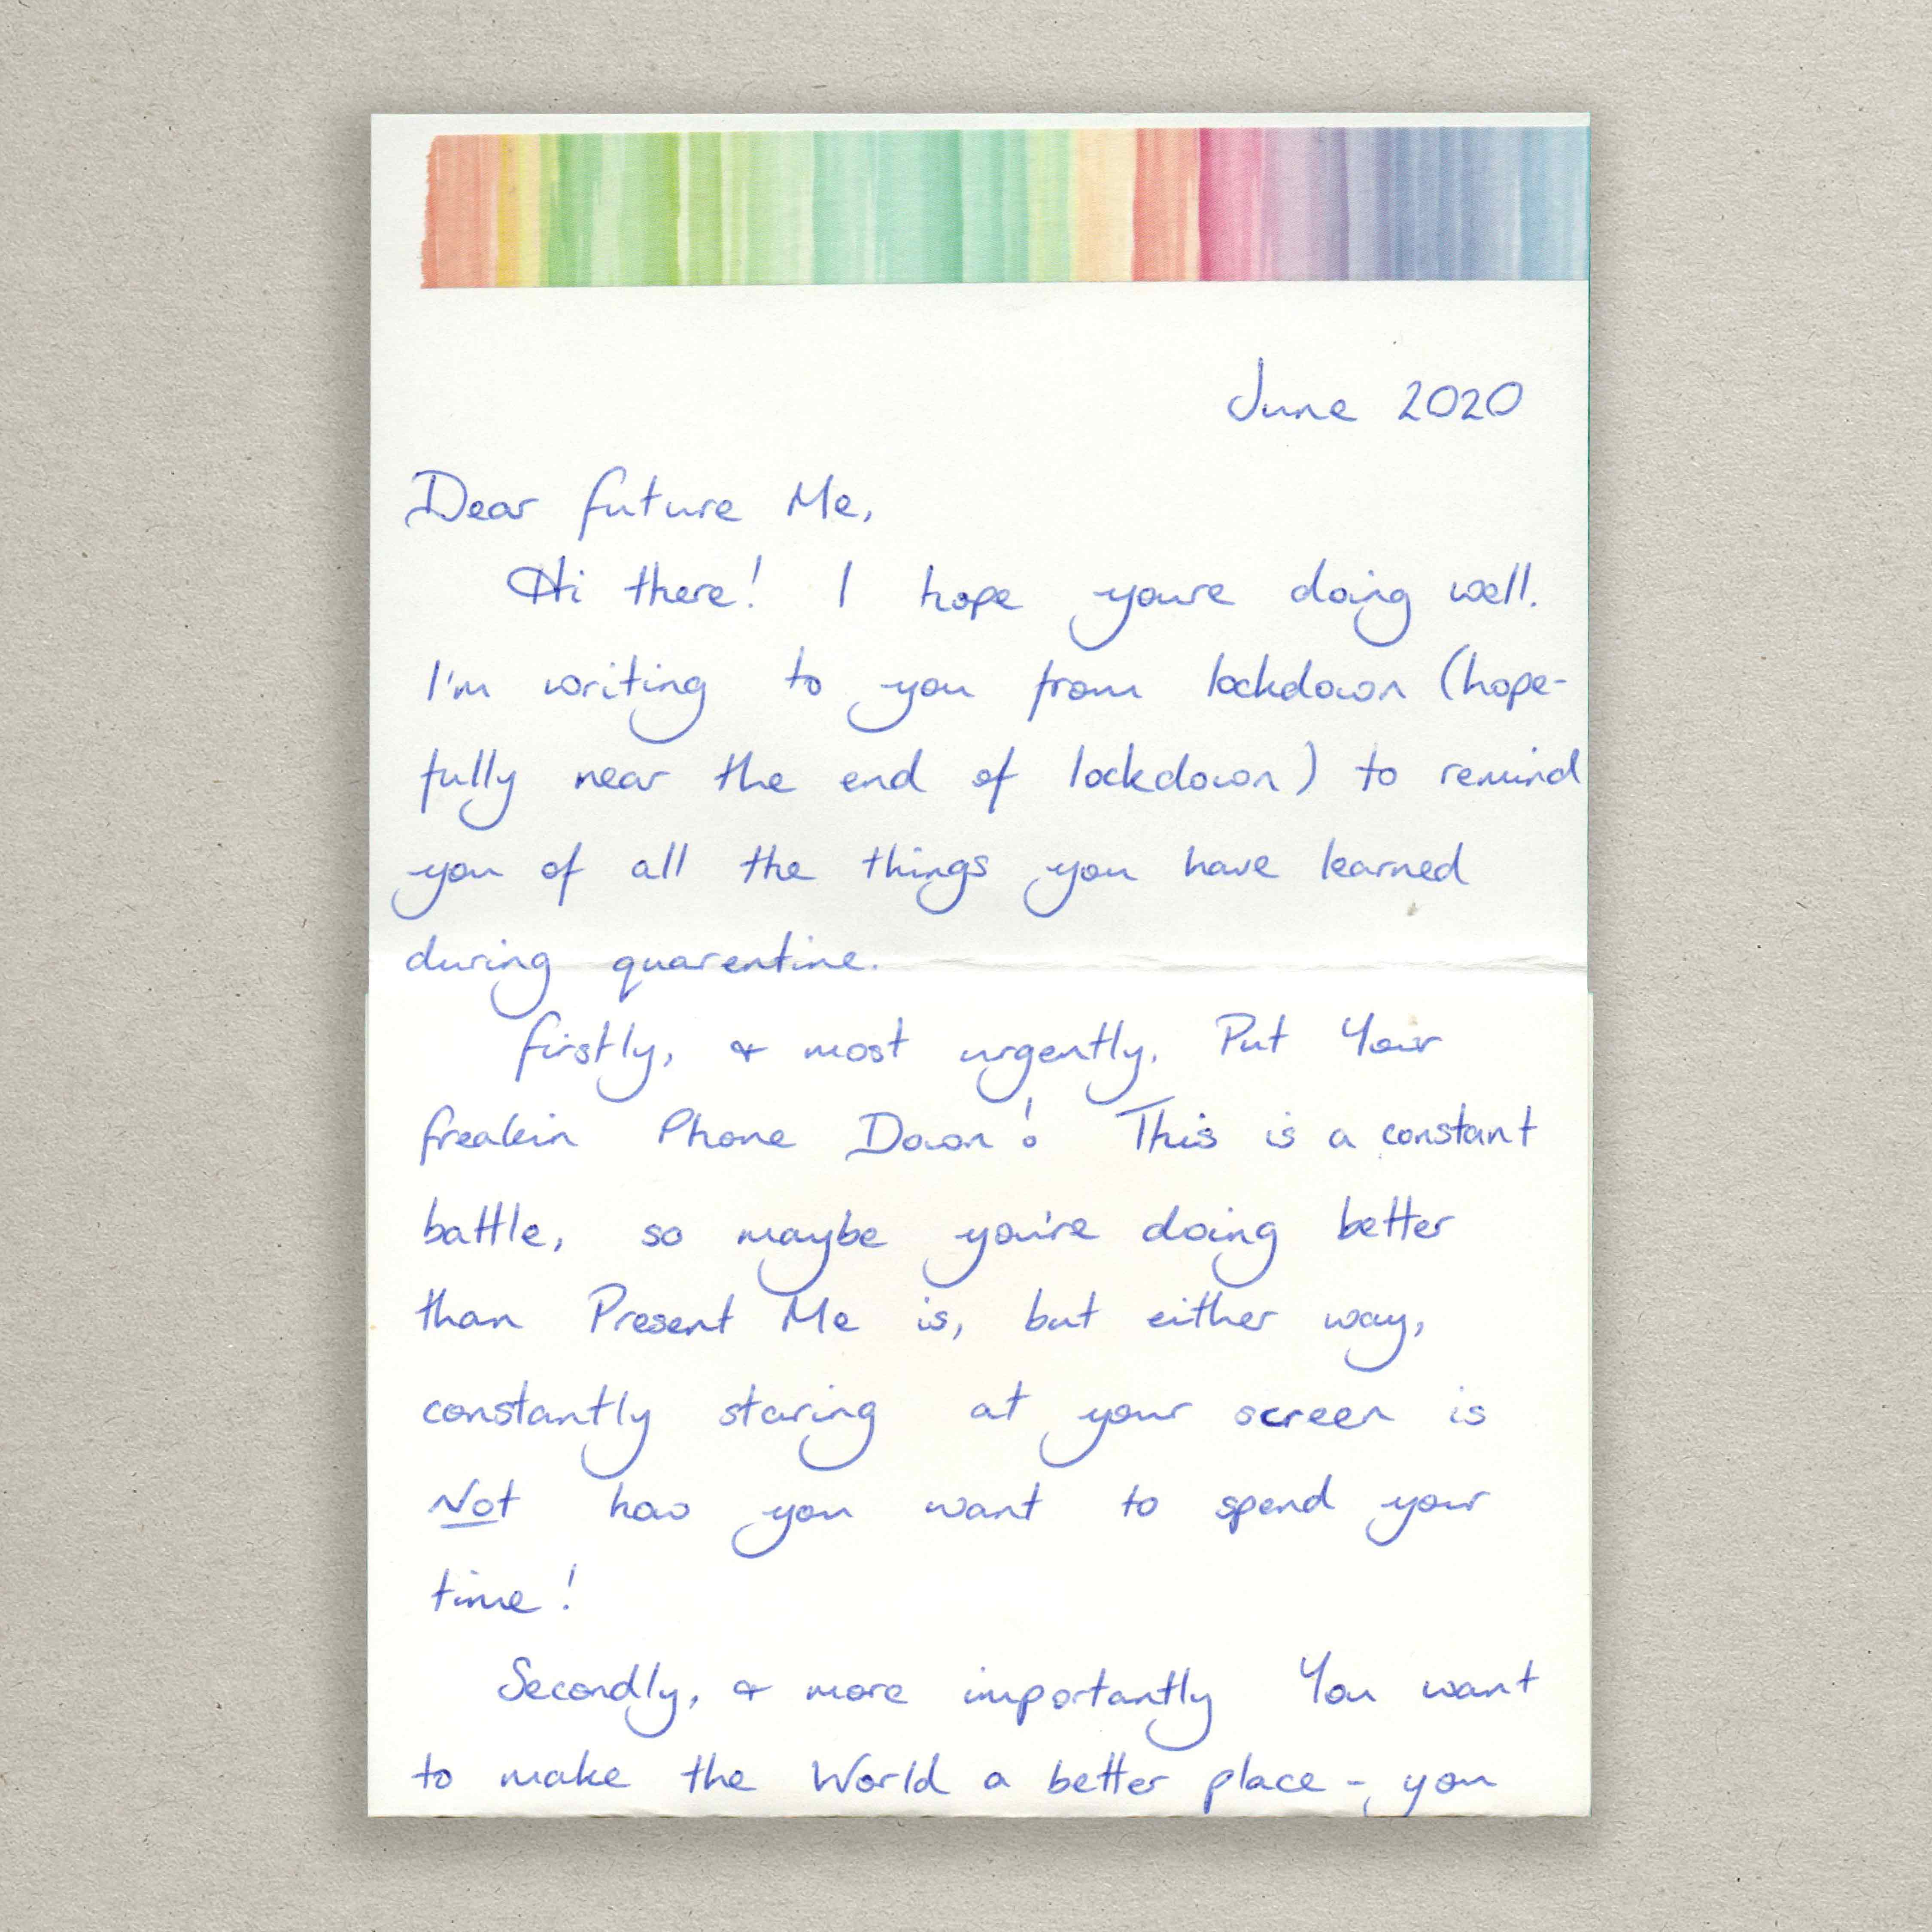 June 2020
Dear future Me,
Hi there! I hope youre doing well.
I'm writing to you from lockdown (hope-
fully near the end of lockdown) to remind
you of all the things you have learned
during quarentine.
firstly, & most urgently. Put Your
freakin Phone Down! This is a constant
battle, so maybe you're doing better
than Present Me is, but either way,
constantly staring at your screen is
Not how you want to spend your
time!
Secondly, & more importantly You want
to make the World a better place - you